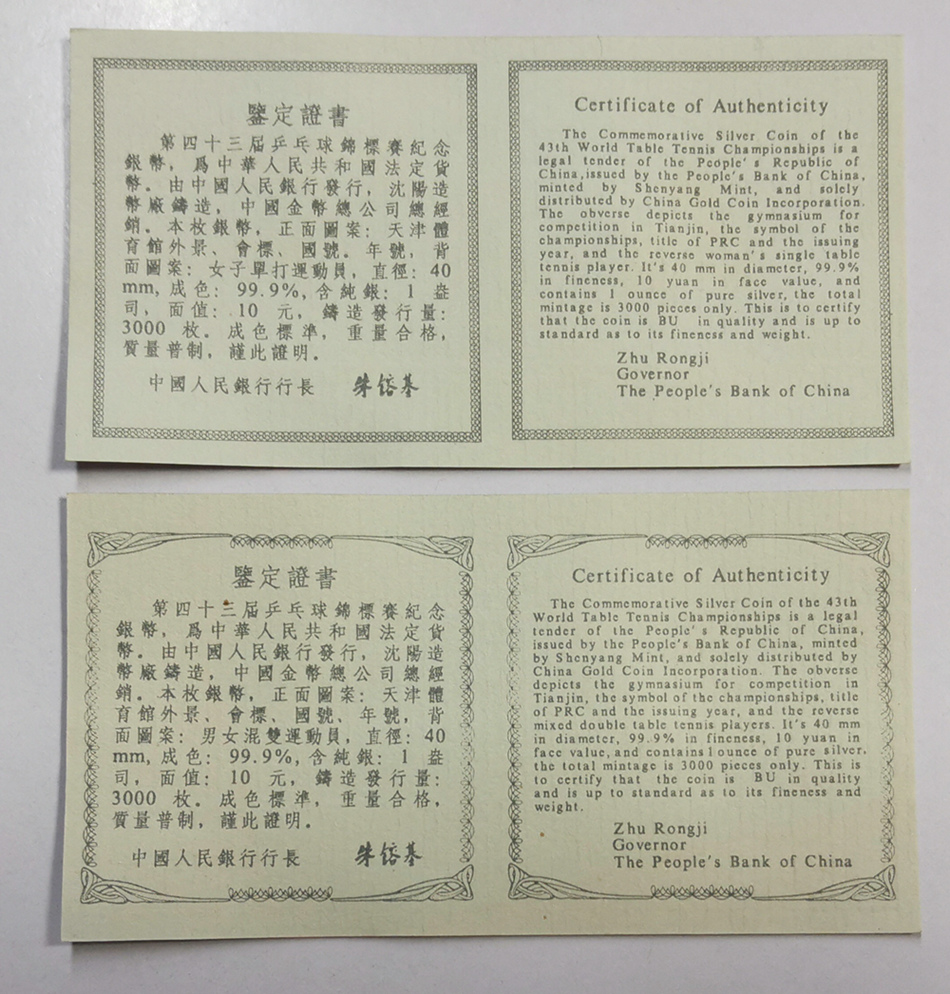 鑒定證書
第四十三屆乒乓球錦標賽紀念
銀幣，爲中華人民共和國法定貨
幣。由中國人民銀行發行，沈陽造
幣廠鑄造，中國金幣總公司總經
銷。本枚銀幣，正面圖案：天津體
育館外景、會標、國號。年號，背
面圖案：女子單打運動員，直徑：40
mm，成色：99.9%，含純銀：1 盎
司，面值：10 元，鑄造發行量：
3000 枚。成色標準，重量合格，
質量普制，謹此證明。
中國人民銀行行長 朱镕基
Certificate of Authenticity
The Commemorative Silver Coin of the
43th World Table Tennis Championships is a
legal tender of the People's Republic of
China,issued by the People's Bank of China,
minted by Shenyang Mint, and solely
distributed by China Gold Coin Incorporation.
The obverse depicts the gymnasium for
competition in Tianjin, the symbol of the
championships, title of PRC and the issuing
year, and the reverse woman's single table
tennis player. It's 40 mm in diameter, 99.9%
in fineness, 10 yuan in face value, and
contains 1 ounce of pure silver, the total
mintage is 3000 pieces only. This is to certify
that the coin is BU in quality and is up to
standard as to its fineness and weight.
Zhu Rongji
Governor
The People's Bank of China
鑒定證書
第四十三屆乒乓球錦標賽紀念
銀幣，爲中華人民共和國法定貨
幣。由中國人民銀行發行，沈陽造
幣廠鑄造，中國金幣總公司總經
銷。本枚銀幣，正面圖案：天津體
育館外景、會標、國號、年號，背
面圖案：男女混雙運動員，直徑：40
mm，成色：99.9%，含純銀：1 盎
司，面值：10 元，鑄造發行量：
3000 枚。成色標準，重量合格，
質量普制，謹此證明。
中國人民銀行行長 朱镕基
Certificate of Authenticity
The Commemorative Silver Coin of the 43th
World Table Tennis Championships is a legal
tender of the People's Republic of China,
issued by the People's Bank of China, minted
by Shenyang Mint, and solely distributed by
China Gold Coin Incorporation. The obverse
depicts the gymnasium for competition in
Tianjin, the symbol of the championships, title
of PRC and the issuing year, and the reverse
mixed double table tennis players. It's 40 mm
in diameter, 99.9% in fineness, 10 yuan in
face value, and contains 1 ounce of pure silver,
the total mintage is 3000 pieces only. This is
to certify that the coin is BU in quality
and is up to standard as to its fineness and
weight.
Zhu Rongji
Governor
The People's Bank of China